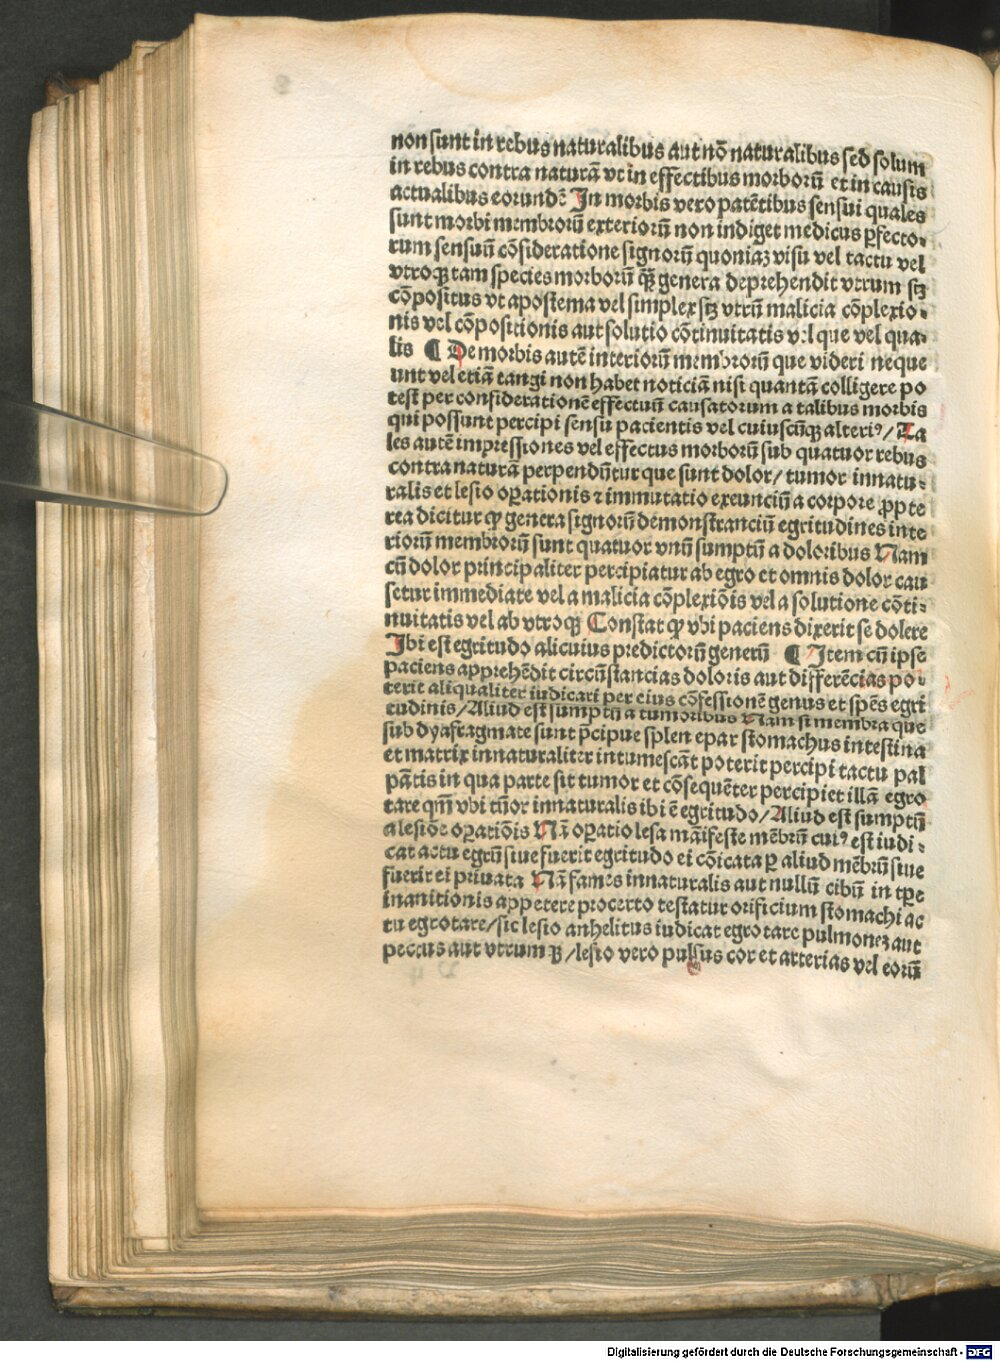 non sunt in rebus naturalibus aut nō naturalibus sed solum
in rebus contra naturā vt in effectibus morborū et in causis
actualibus eorundē In morbis vero patētibus sensui quales
sunt morbi membrorū exteriorū non indiget medicus ꝑfecto-
rum sensuū cōsideratione signorū quoniaꝫ visu vel tactu vel
vtroqꝫ tam species morborū qꝫ̄ genera deprehendit vtrum sꝫ
cōpositus vt apostema vel simplex sꝫ vtrū malicia cōplexio-
nis vel cōpositionis aut solutio cōtinuitatis vel que vel qua-
lis ¶ De morbis autē interiorū membrorū que videri neque
unt vel etiā tangi non habet noticiā nisi quantā colligere po
test per considerationē effectuū causatorum a talibus morbis
qui possunt percipi sensu pacientis vel cuiuscūqꝫ alteriꝰ/ Ta
les autē impressiones vel effectus morborū sub quatuor rebus
contra naturā perpendūtur que sunt dolor/ tumor innatu-
ralis et lesio oꝑationis ⁊ immutatio exeunciū a corpore ꝓpte
rea dicitur ꝙ genera signorū demonstranciū egritudines inte
riorū membrorū sunt quatuor vnū sumptū a doloribus Nam
cū dolor principaliter percipiatur ab egro et omnis dolor cau
setur immediate vel a malicia cōplexiōis vel a solutione cōti-
nuitatis vel ab vtroqꝫ Constat ꝙ vbi paciens dixerit se dolere
Ibi est egritudo alicuius predictorū generū ¶ Item cū ipse
paciens apprehēdit circūstancias doloris aut differēcias po-
terit aliqualiter iudicari per eius cōfessionē genus et spēs egri
tudinis/ Aliud est sumptū a tumoribus Nam si membra que
sub dyafragmate sunt p̄cipue splen epar stomachus intestina
et matrix innaturaliter intumescāt poterit percipi tactu pal
pātis in qua parte sit tumor et cōsequēter percipiet illā egro
tare qm̄ vbi tūor innaturalis ibi ē egritudo/ Aliud est sumptū
a lesiōe oꝑatiōis Nā oꝑatio lesa māifeste mēbrū cuiꝰ est iudi-
cat actu egrū siue fuerit egritudo ei cōicata ꝑ aliud mēbrū siue
fuerit ei priuata Nā fames innaturalis aut nullū cibū in tꝑe
inanitionis appetere procerto testatur orificium stomachi ac
tu egrotare/ sic lesio anhelitus iudicat egrotare pulmoneꝫ aut
pectus aut vtrumqꝫ/ lesio vero pulsus cor et arterias vel eorū
Digitalisierung gefördert durch die Deutsche Forschungsgemeinschaft - DFG